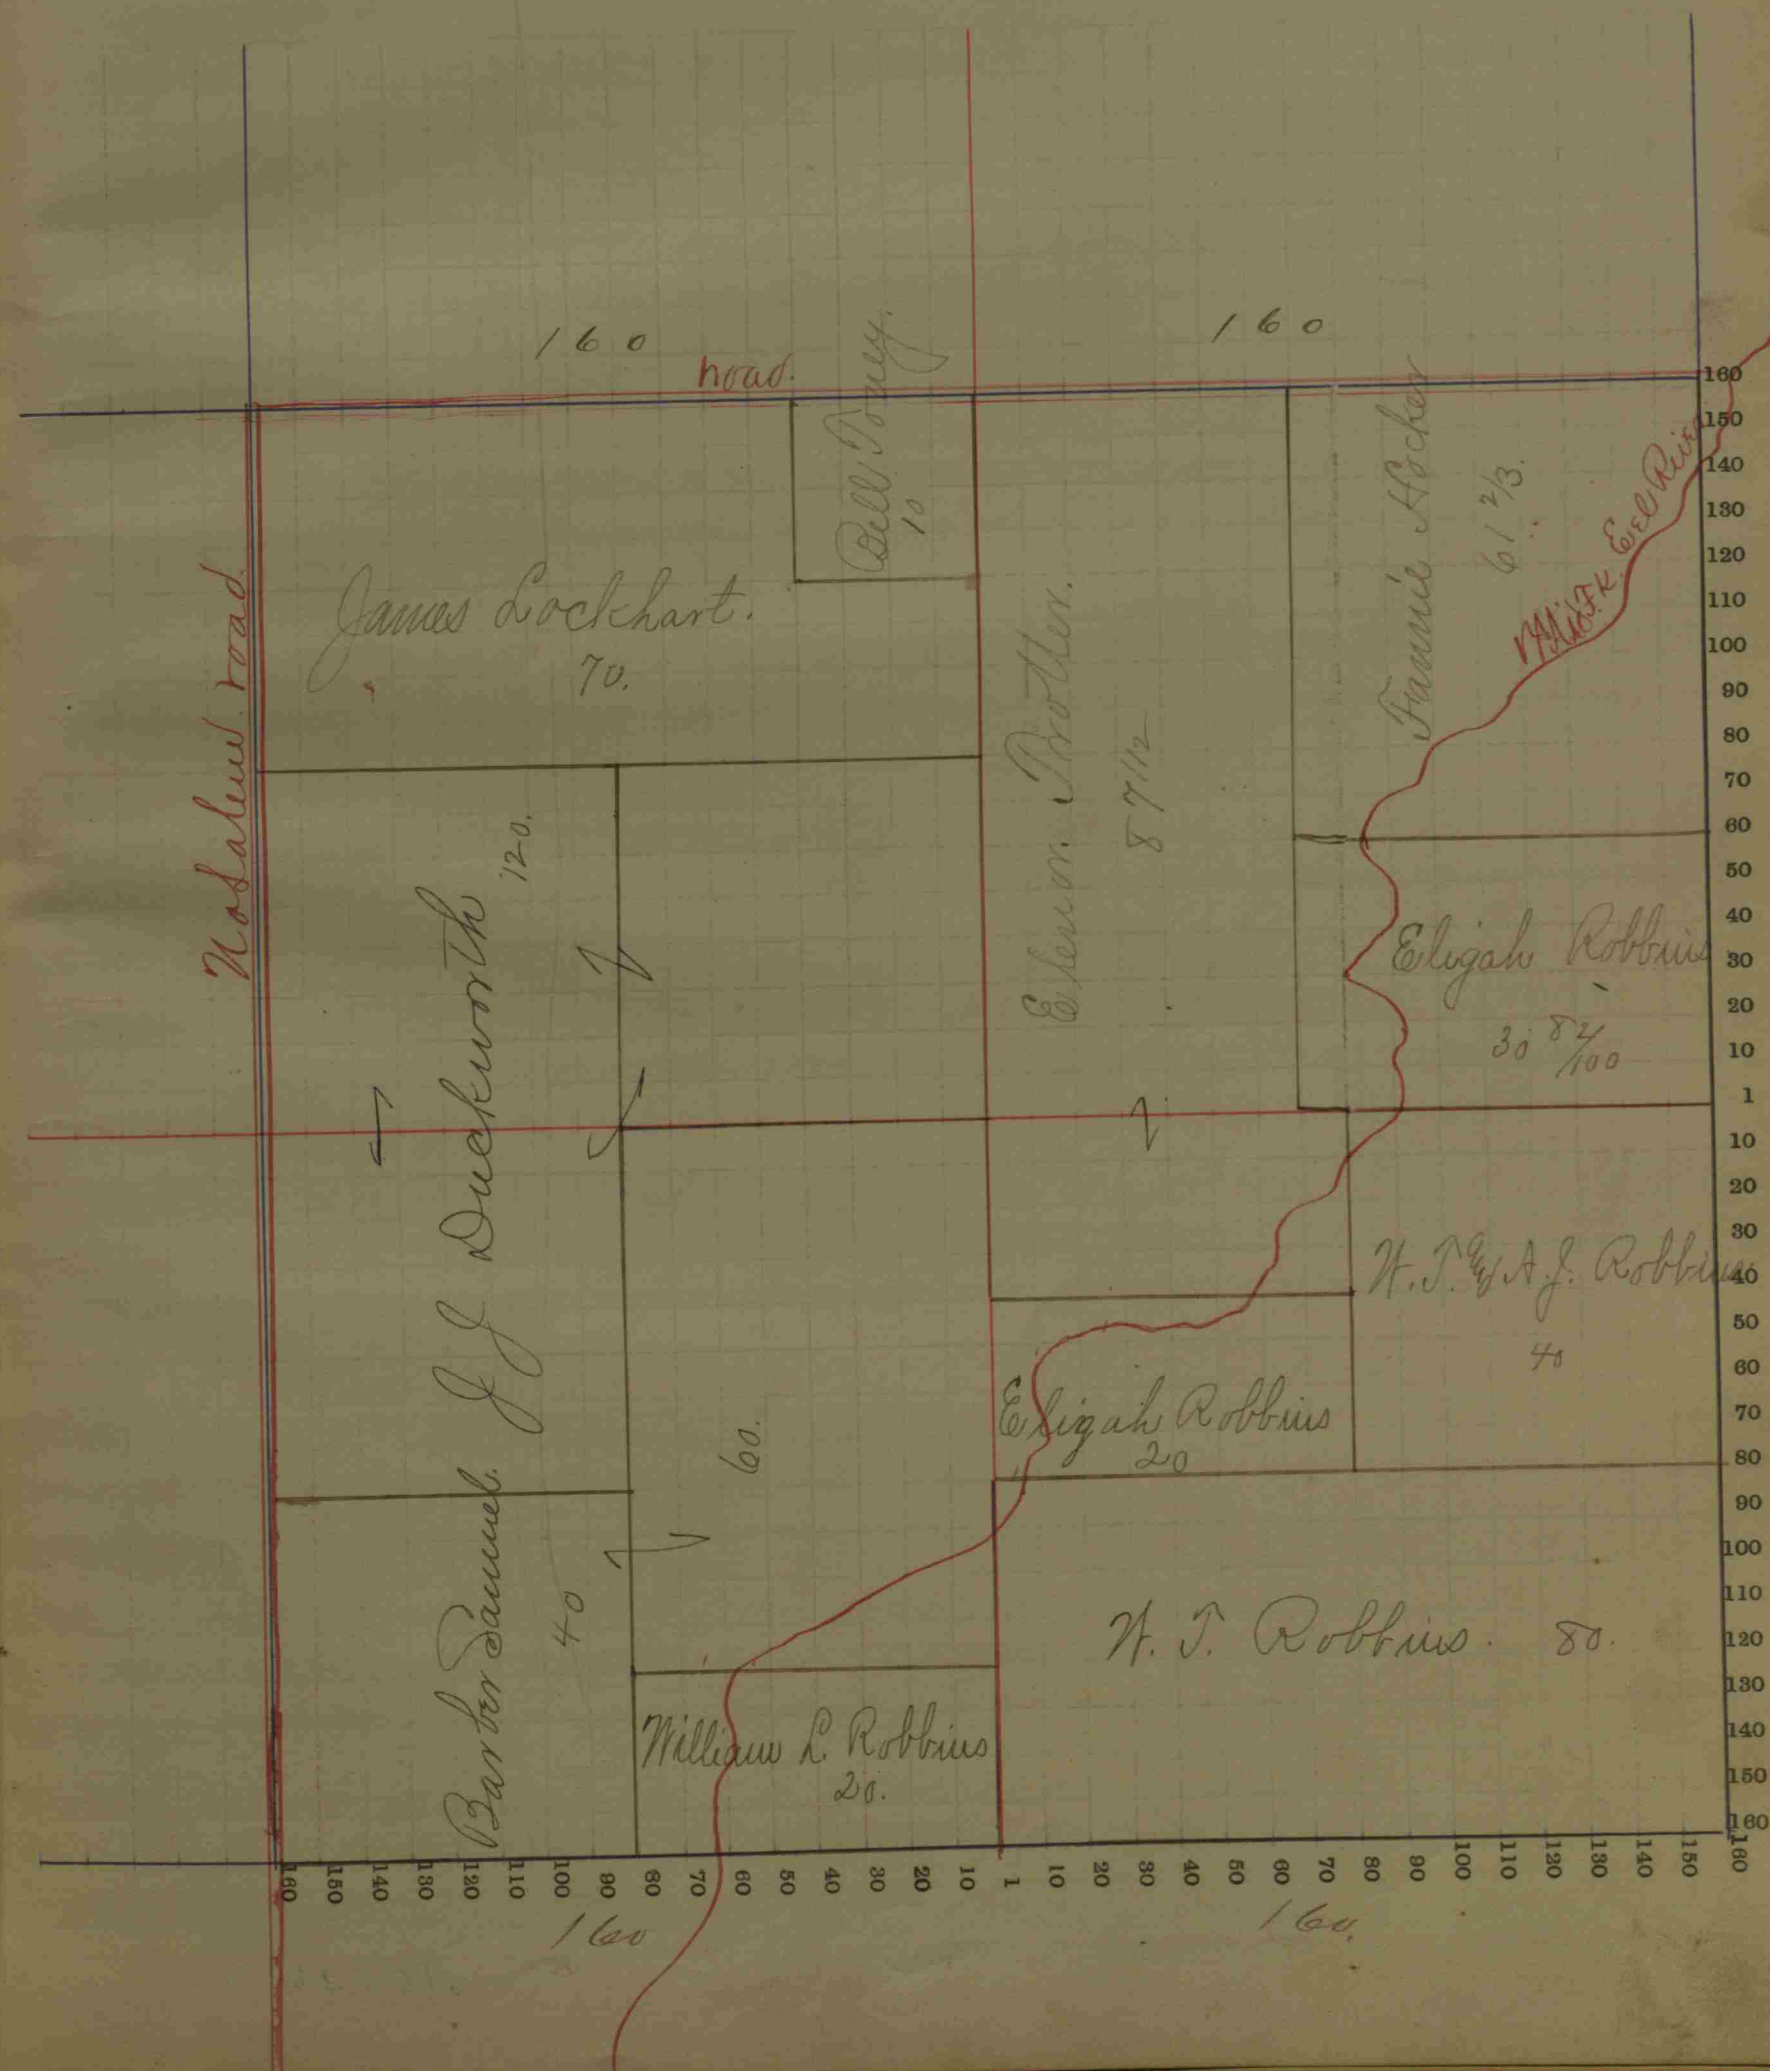 160
160
road.
Bell Toney.
10
James Lockhart.
70.
road
Fannie Hocker
61 2/3.
Mid. Fk. Eel River
87 1/2
J J Duckworth
120.
Eligah Robbins
30 82/100
W. T. and A. J. Robbins
40
60.
Eligah Robbins
20
Barber Samuel.
40
W. T. Robbins. 80.
William L. Robbins
20.
160
150
140
130
120
110
100
90
80
70
60
50
40
30
20
10
1
10
20
30
40
50
60
70
80
90
100
110
120
130
140
150
160
160 150 140 130 120 110 100 90 80 70 60 50 40 30 20 10 1 10 20 30 40 50 60 70 80 90 100 110 120 130 140 150 160
160
160.